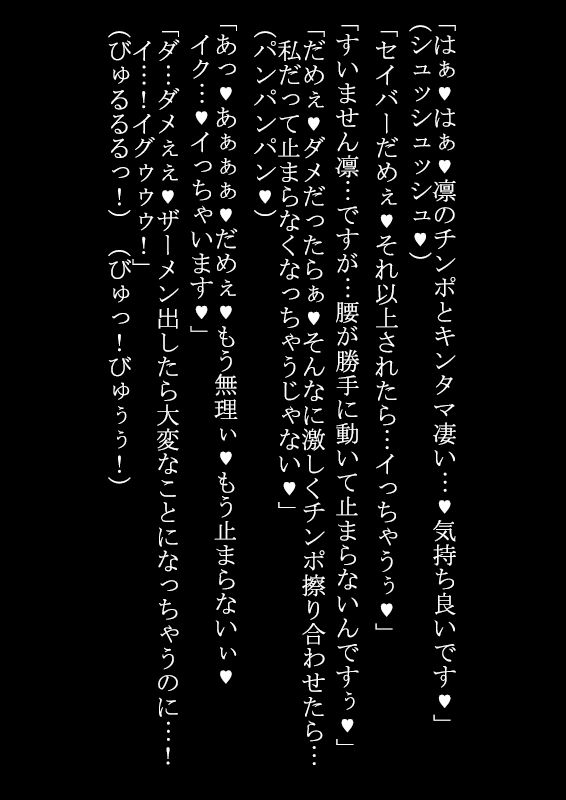 「はぁ♥はぁ♥凛のチンポとキンタマ凄い…♥気持ち良いです♥」
(シュッシュッシュ♥)
「セイバーだめぇ♥それ以上されたら…イっちゃうぅ♥」
「すいません凛…ですが…腰が勝手に動いて止まらないんですぅ♥」
「だめぇ♥ダメだったらぁ♥そんなに激しくチンポ擦り合わせたら…
私だって止まらなくなっちゃうじゃない♥」
(パンパンパン♥)
「あっ♥あぁぁぁ♥だめぇ♥もう無理ぃ♥もう止まらないぃ♥
イク…♥イっちゃいます♥」
「ダ…ダメぇぇ♥ザーメン出したら大変なことになっちゃうのに…!
イ…!イグゥゥゥ!」
(びゅるるるっ!) (びゅっ!びゅぅぅ!)